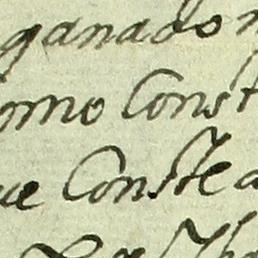 ganado
omo Const
ue Conste a